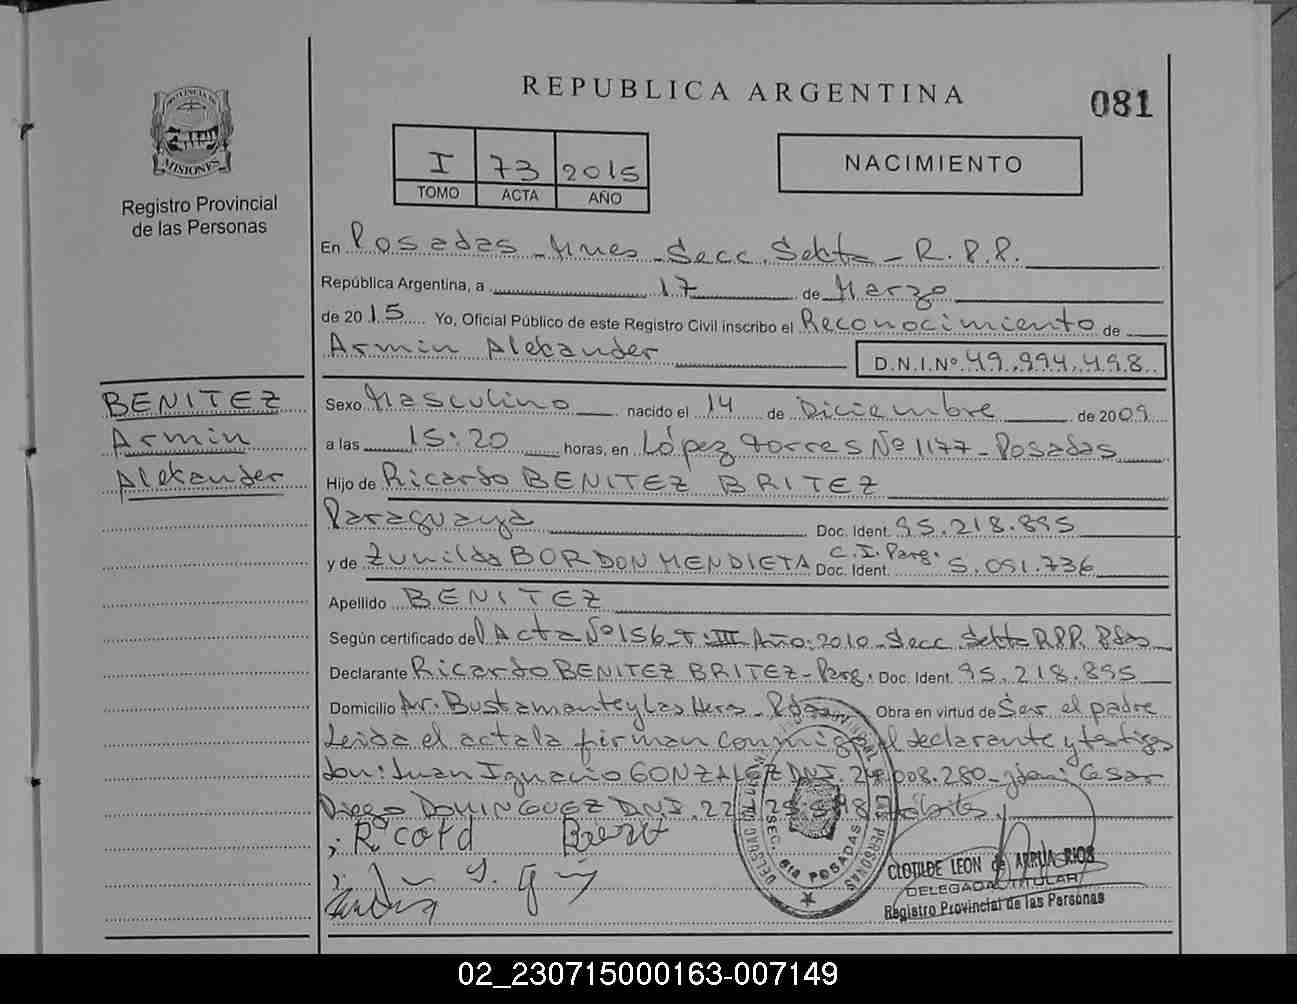 REPUBLICA ARGENTINA
081
PROVINCIA DE
MISIONES
Registro Provincial
de las Personas
I 73 2015
TOMO ACTA AÑO
NACIMIENTO
En Posadas - Mnes - Secc. Sexta - R.P.P.
República Argentina, a 17 de Marzo
de 2015 Yo, Oficial Público de este Registro Civil inscribo el Reconocimiento de
Armin Alexander D.N.I.Nº 49.994.498
BENITEZ
Armin
Alexander
Sexo Masculino nacido el 14 de Diciembre de 2009
a las 15:20 horas, en López Torres Nº 1177 - Posadas
Hijo de Ricardo BENITEZ BRITEZ
Paraguaya Doc. Ident. 95.218.895
y de Zunilda BORDON MENDIETA C.I. Parg. Doc. Ident. 5.051.736
Apellido BENITEZ
Según certificado del Acta Nº 156 - T: III Año: 2010 - Secc. Sexta RPP. Pdas
Declarante Ricardo BENITEZ BRITEZ - Parg. Doc. Ident. 95.218.895
Domicilio Av. Bustamante y Las Heras - Pdas Obra en virtud de Ser el padre
Leida el acta la firman conmigo el declarante y testigos
don: Juan Ignacio GONZALEZ DNI. 008.280 - y don: Cesar
Diego DOMINGUEZ DNI. Hábiles.
Ricard Benit
SEC. 6ta POSADAS
CLOTILDE LEON de ARRUA RIOS
DELEGADA TITULAR
Registro Provincial de las Personas
02_230715000163-007149